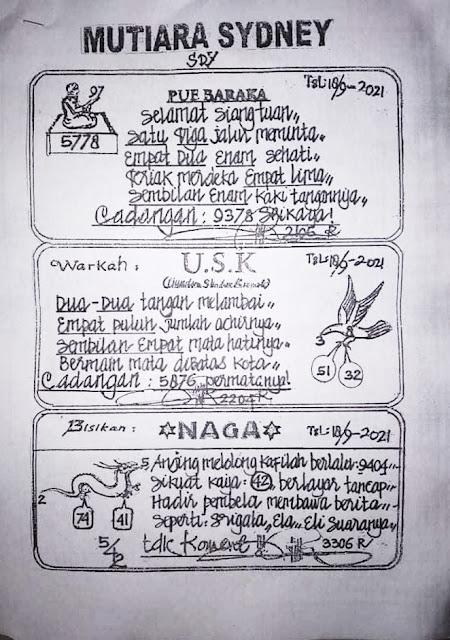 MUTIARA SYDNEY
SDY
97
5778
Tgl: 18/9-2021
PUE BARAKA
Selamat siang tuan,,
Satu Tiga jalur meminta,,
Empat Dua Enam sehati,,
Teriak merdeka Empat Lima,,
Sembilan Enam kaki tangannya,,
Cadangan: 9378 Srikaya!
2105 R
Warkah:
U.S.K
Tgl: 18/9-2021
Dua-Dua tangan melambai,,
Empat puluh jumlah achirnya,,
Sembilan Empat mata hatinya,,
Bermain mata dibatas kota,,
Cadangan: 5876 permatanya!
2204 R
3
51
32
Bisikan:
NAGA
Tgl: 18/9-2021
5
2
74
41
5/42
Anjing melolong kafilah berlalu: 9404,,
Sikuat kaija: 42, berlayar tancap,,
Hadir pembela membawa berita,,
Seperti: Srigala,, Ela.. Eli Suaranya,,
tdk
3306 R